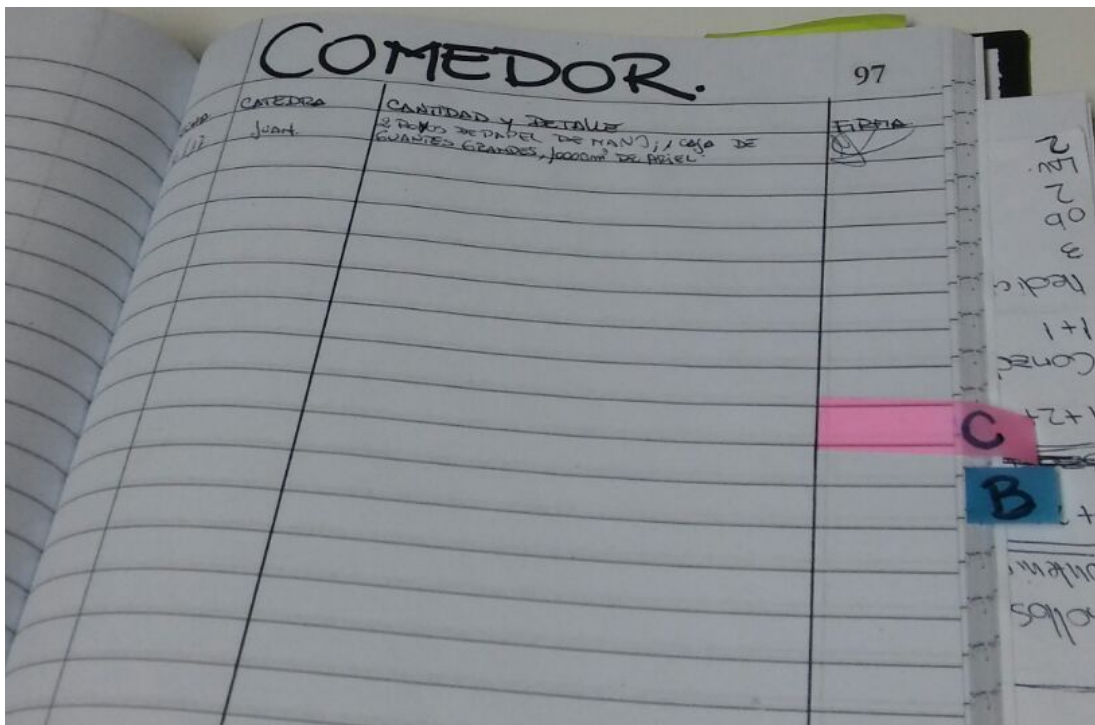 COMEDOR.
97
CATEDRA CANTIDAD Y DETALLE FIRMA
Juan. 2 ROLLOS DE PAPEL DE MANO; 1 CAJA DE
GUANTES GRANDES, 1000cm³ DE ARIEL.
C
B
2
2
ob
3
Medic
1+1
Comed
+2+
+
rollos